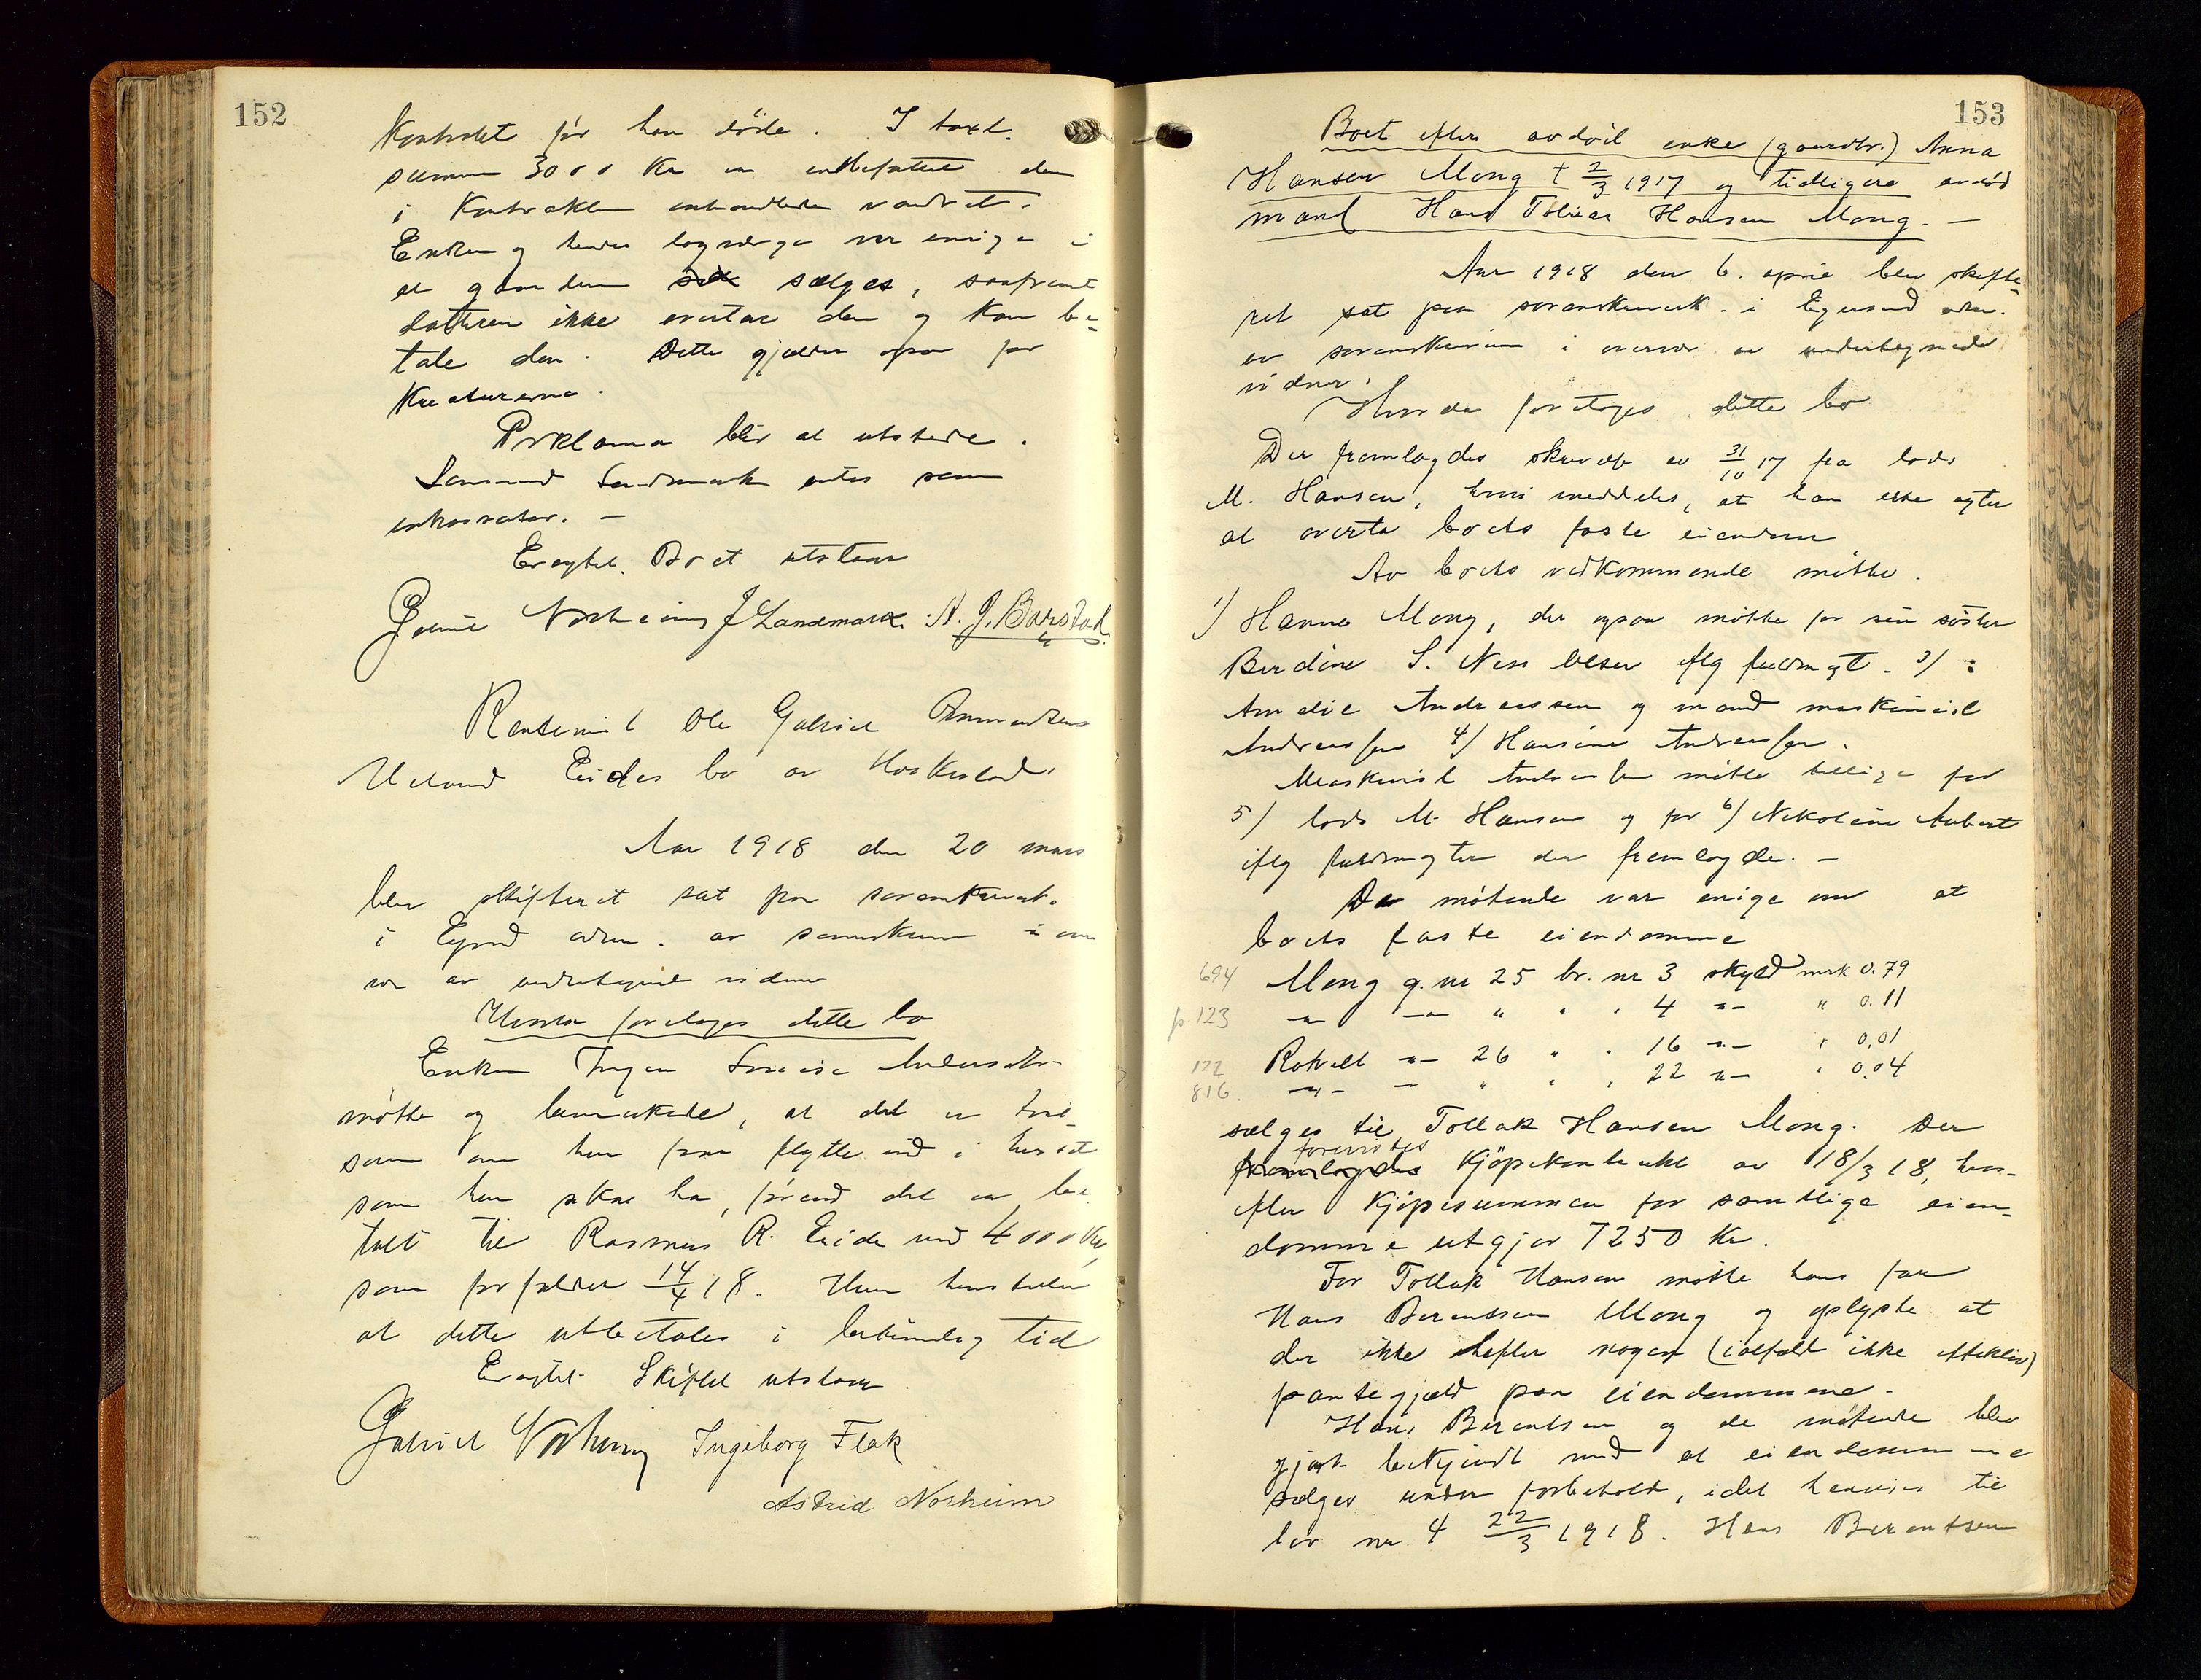 152
Kontraktet før han døde. I taxt.
summen 3000 Kr er indbefattet den
i Kontrakten omhandlede vandret.
Enken og hendes lagværge var enige i
at gaarden sælges, saafremt
datteren ikke overtar den og kan be-
tale den. Dette gjælder ogsaa for
Kreaturerne.
Proklama blir at utstede.
Lensmand Landmark antas som
inkassator. —
Oplæst. Boet utstaar
Gabriel Norheim J Landmark. A. J. Barstad.
Rentenist Ole Gabriel Ommundsen
Ueland Eides bo av Haskestad.
Aar 1918 den 20 mars
blev skifteret sat paa sorenskriverk.
i Egersund adm. av sorenskriveren i over
vær av undertegnede vidner
Hvorda foretoges dette bo
Enken Inger Andersdtr
møtte og bemerkede, at det er tvil-
som om hun faar flytte ind i huset
som hun skal ha, førend det er be-
talt til Rasmus R. Eide med 4000 Kr,
som forfalder 14/4 18. Hun henstiller
at dette utbetales i betimelig tid
Skiftet utstaar.
Gabriel Norheim Ingeborg Flak
Astrid Norheim
153
Boet efter avdød enke (gaardbr.) Anna
Hansen Mong † 2/3 1917 og tidligere avdød
mand Hans Tobias Hansen Mong. —
Aar 1918 den 6. april blev skifte-
ret sat paa sorenskriverk. i Egersund adm.
av sorenskriveren i overvær av undertegnede
vidner.
Hvorda foretoges dette bo
Der fremlagdes skrivelse av 31/10 17 fra lods
M. Hansen, hvori meddeles, at han ikke agter
at overta boets faste eiendom
Av boets vedkommende møtte.
1/ Hanna Mong, der ogsaa møtte for sin søster
Berdine S. Ness Olsen iflg fuldmagt. 3/
Amalie Andreassen og mand maskinist
Andreassen 4/ Hansine Andreassen.
Maskinist Andreassen møtte tillige for
5/ lods M. Hansen og for 6/ Nikoline Aubert
iflg fuldmagter der fremlagde. —
De møtende var enige om at
boets faste eiendomme
694 Mong g. nr 25 br. nr 3 skyld mrk 0.79
p. 123 —"— —"— " " " 4 —"— " 0.11
122 Rakvell —"— 26 " " 16 —"— " 0.01
816. —"— — " " " 22 —"— " 0.04
sælges til Tollak Hansen Mong. Der
forevistes
fremlagdes Kjøpekontrakt av 18/3 18, hvor-
efter Kjøpesummen for samtlige eien-
domme utgjør 7250 Kr.
For Tollak Hansen møtte hans far
Hans Berentsen Mong og oplyste at
der ikke hefter nogen (ialfald ikke effektiv)
pantegjæld paa eiendommene.
Hans Berentsen og de møtende blev
gjort bekjendt med at eiendommene
sælges under forbehold, idet henvises til
lov nr 4 22/3 1918. Hans Berentsen